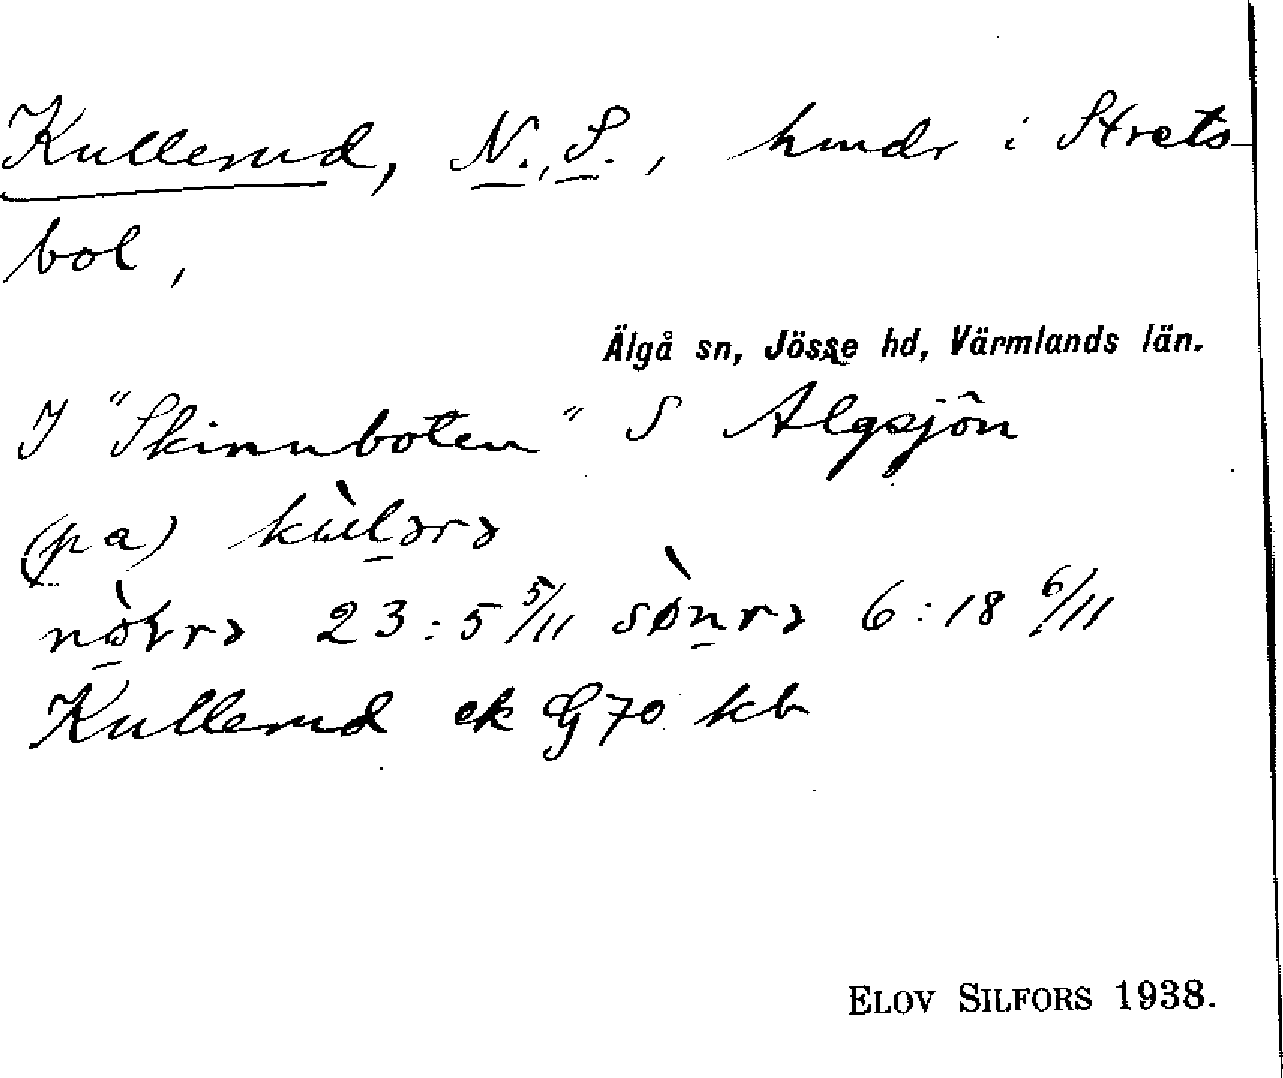 Kullerud, N., S., hmdr i Strets-
bol,
Älgå sn, Jösse hd, Värmlands län.
I "Skinnboten" S Algsjön
(pa) kùlərə
nòḷrə 23:5 5/11 sø̀nrə 6:18 6/11
Kullerud ek G70 kb
ELOV SILFORS 1938.